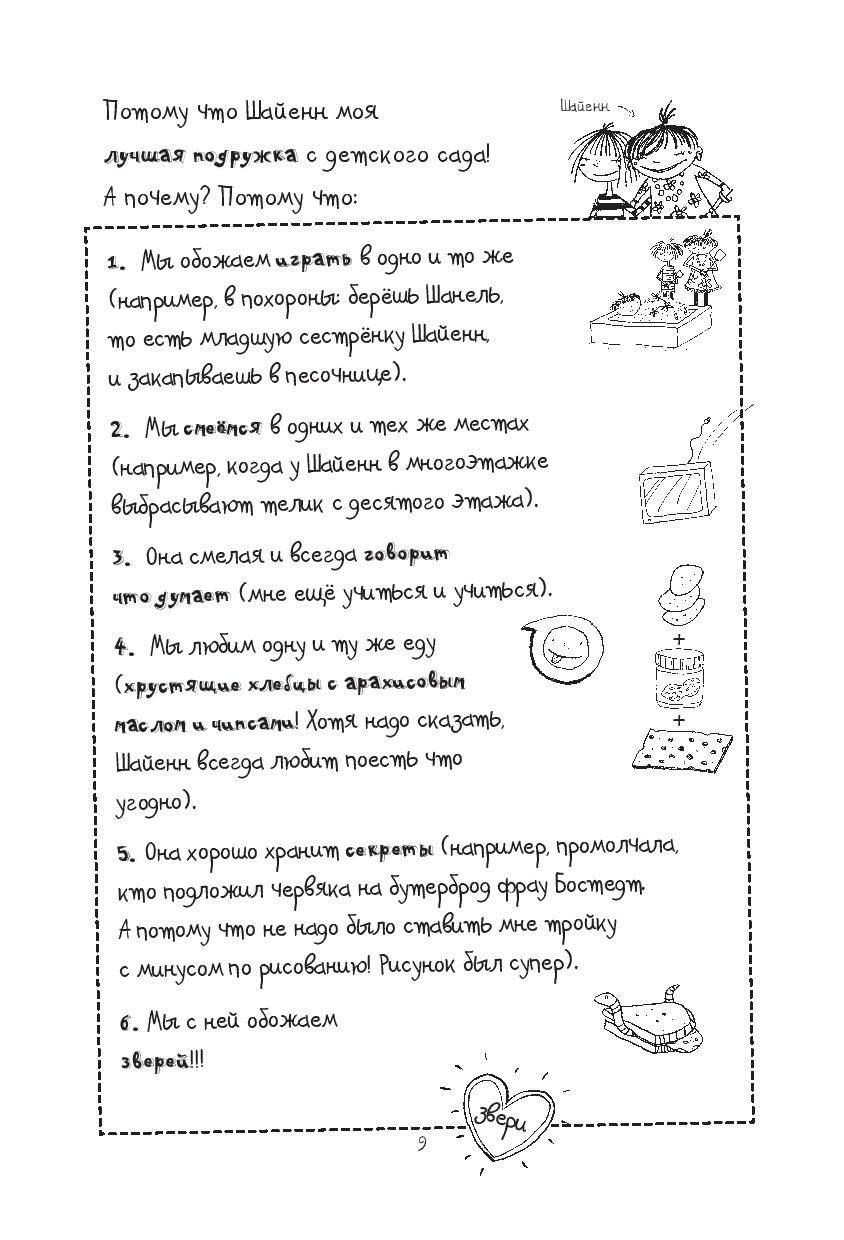 Потому что Шайенн моя
Шайенн
лучшая подружка с детского сада!
А почему? Потому что:
1. Мы обожаем играть в одно и то же
(например, в похороны: берёшь Шанель,
то есть младшую сестрёнку Шайенн,
и закапываешь в песочнице).
2. Мы смеёмся в одних и тех же местах
(например, когда у Шайенн в многоэтажке
выбрасывают телик с десятого этажа).
3. Она смелая и всегда говорит
что думает (мне ещё учиться и учиться).
4. Мы любим одну и ту же еду
(хрустящие хлебцы с арахисовым
маслом и чипсами! Хотя надо сказать,
Шайенн всегда любит поесть что
угодно).
5. Она хорошо хранит секреты (например, промолчала,
кто подложил червяка на бутерброд фрау Бостедт.
А потому что не надо было ставить мне тройку
с минусом по рисованию! Рисунок был супер).
6. Мы с ней обожаем
зверей!!!
звери
9